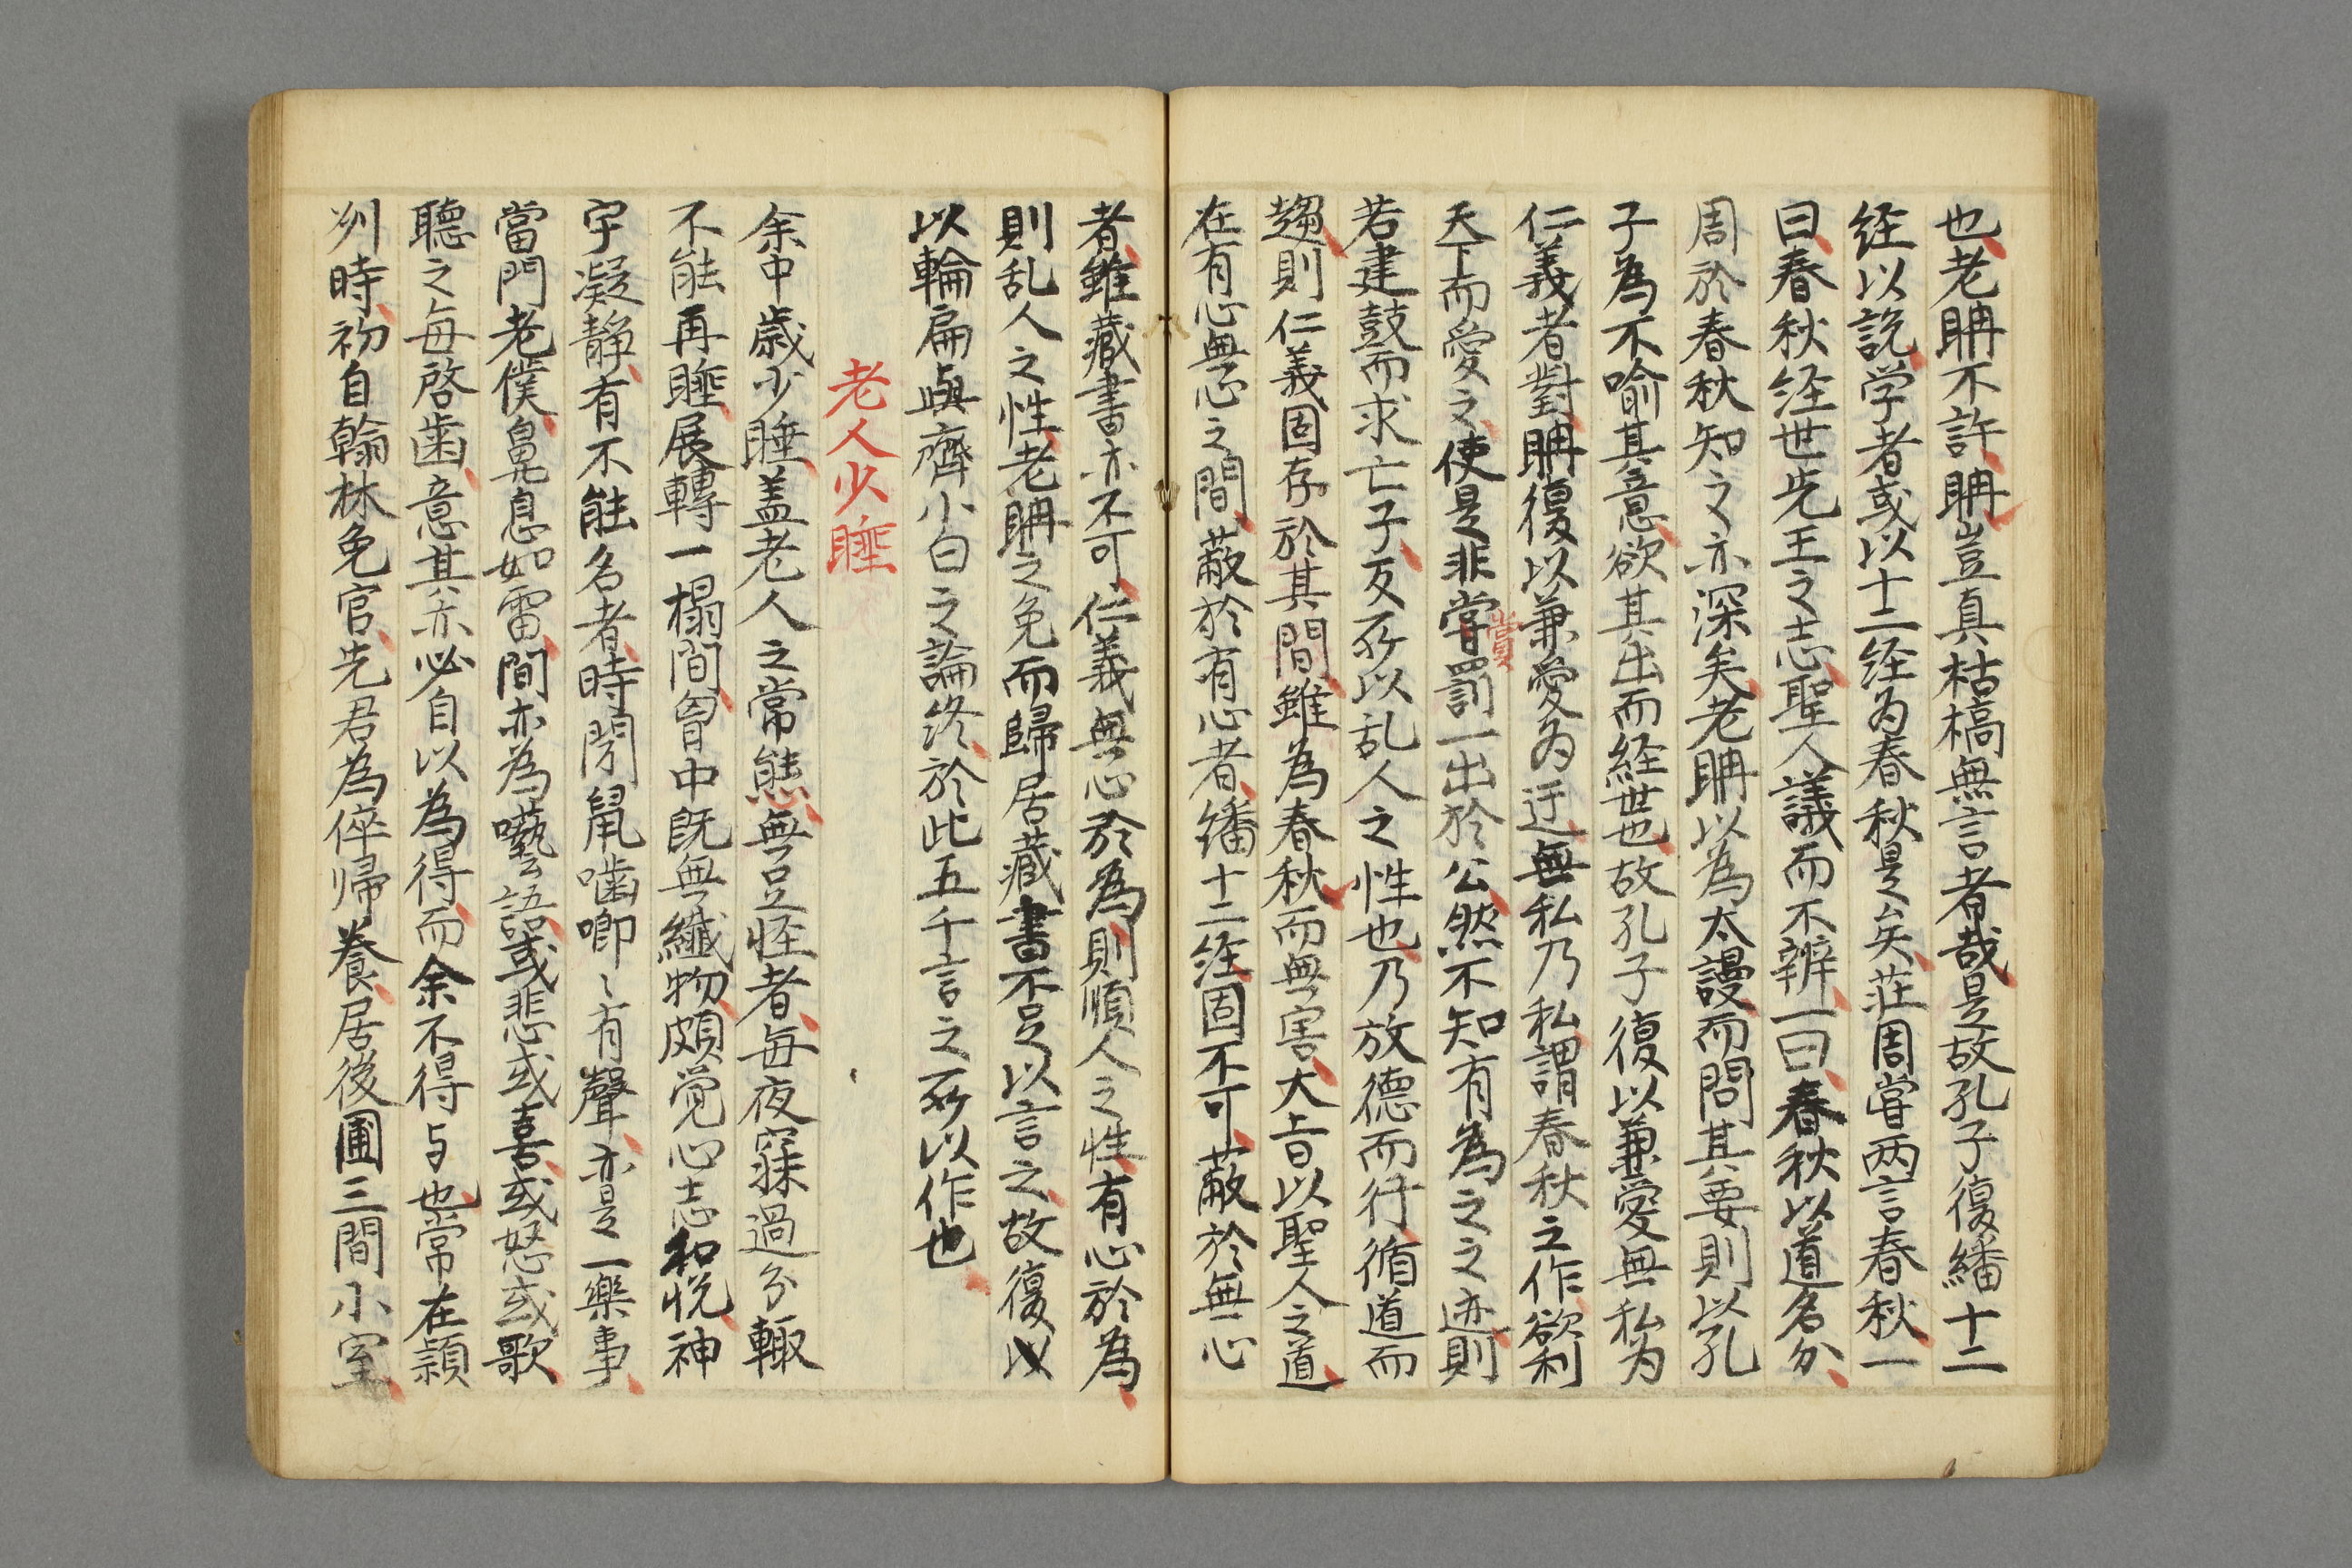 也老聃不許聃豈真枯槁無言者哉是故孔子復繙十二
経以説学者或以十二経为春秋是矣莊周嘗两言春秋一
曰春秋経世先王之志聖人議而不辨一曰春秋以道名分
周於春秋知之亦深矣老聃以為太謾而問其要則以孔
子為不喻其意欲其出而経世也故孔子復以兼愛無私为
仁義者對聃復以兼愛为迂無私乃私謂春秋之作欲利
天下而愛之使是非嘗罰一出於公然不知有為之之迹則
賞
若建鼓而求亡子反所以乱人之性也乃放德而行循道而
趨則仁義固存於其間雖為春秋而無害大旨以聖人之道
在有心無心之間蔽於有心者繙十二経固不可蔽於無心
者雖藏書亦不可仁義無心於為則順人之性有心於為
則乱人之性老聃之免而歸居藏書不足以言之故復以
以輪扁與齊小白之論終於此五千言之所以作也
老人少睡
余中歳少睡盖老人之常態無足怪者每夜寐過分輙
不能再睡展轉一榻間胷中既無纖物頗覚心志和悦神
宇凝静有不能名者時聞鼠嚙唧〻有聲亦是一樂事
當門老僕鼻息如雷間亦為囈語或悲或喜或怒或歌
聽之每啓歯意其亦必自以為得而余不得与也常在頴
州時初自翰林免官先君為倅帰養居後圃三間小室